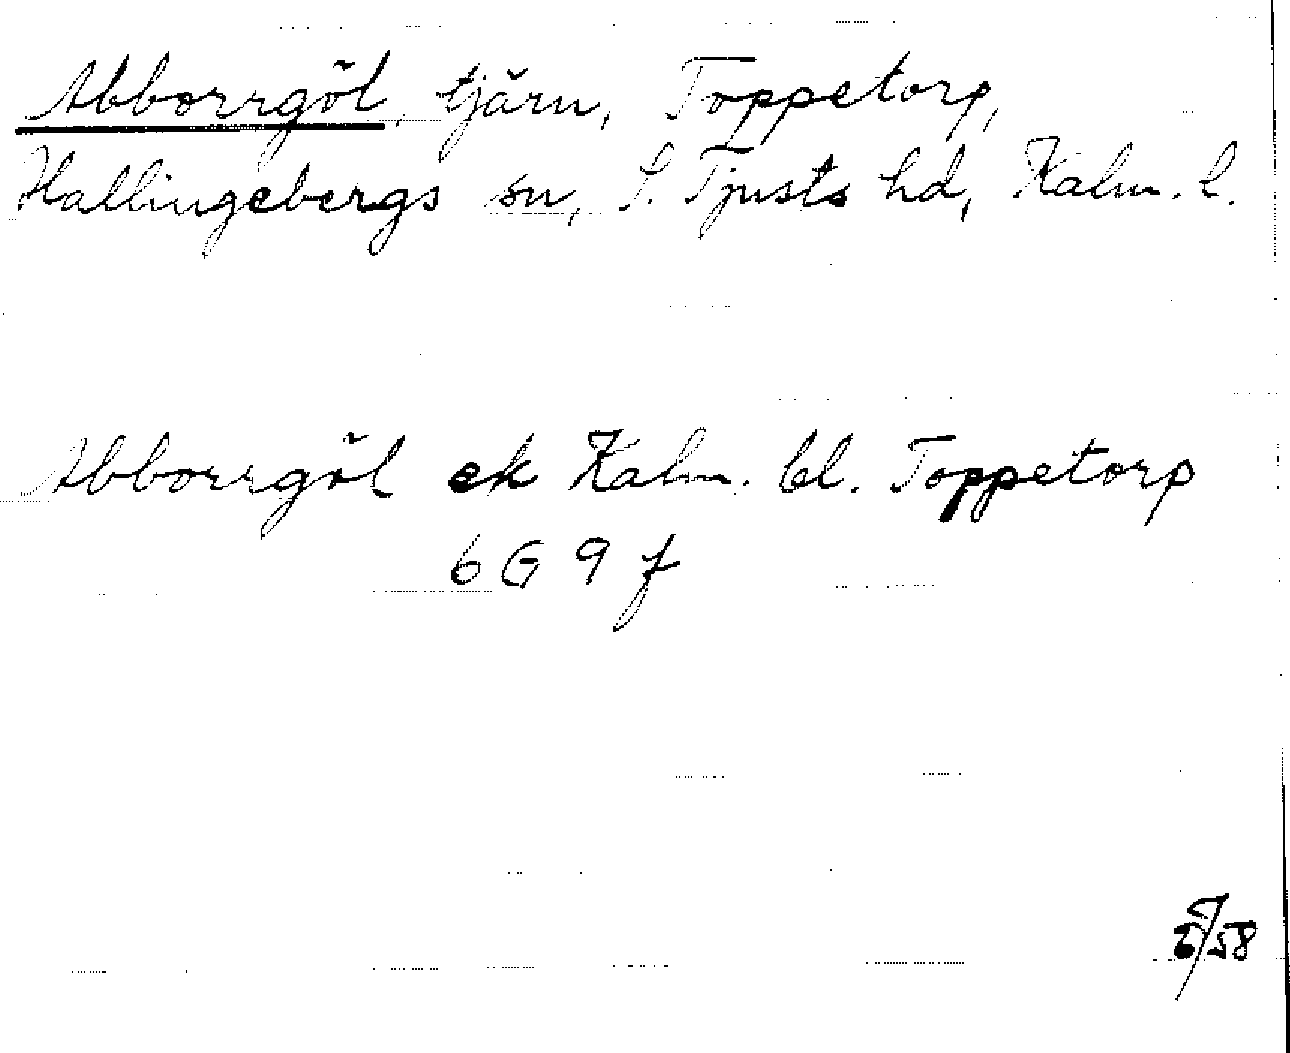 Abborrgöl, tjärn, Toppetorp,
Hallingebergs sn, S. Tjusts hd, Kalm. l.
Abborrgöl ek Kalm. bl. Toppetorp
6 G 9 f
/58